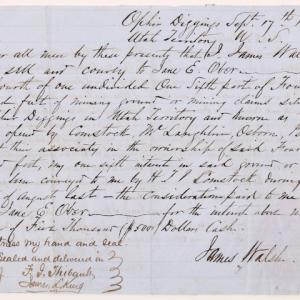 Ophir Diggings Sept 17th
Utah Territory U. S.
all men by these presents that I James Wal
sell and convey to Jane E. Ober
fourth of one undivided One Sixth part of Four
feet of mining ground or mining claims sit
Diggings in Utah Territory and known as
opened by Comstock McLaughlin, Osborn,
their associates in the ownership of said Four
feet, my one sixth interest in said ground
been conveyed to me by H. T. P. Comstock during
of August last — the Consideration paid to me
Jane E Ober for the interest above
of Five Thousand ($5000) Dollars Cash.
my hand and seal.
Sealed and delivered in
James Walsh
F. J. Thibault
James